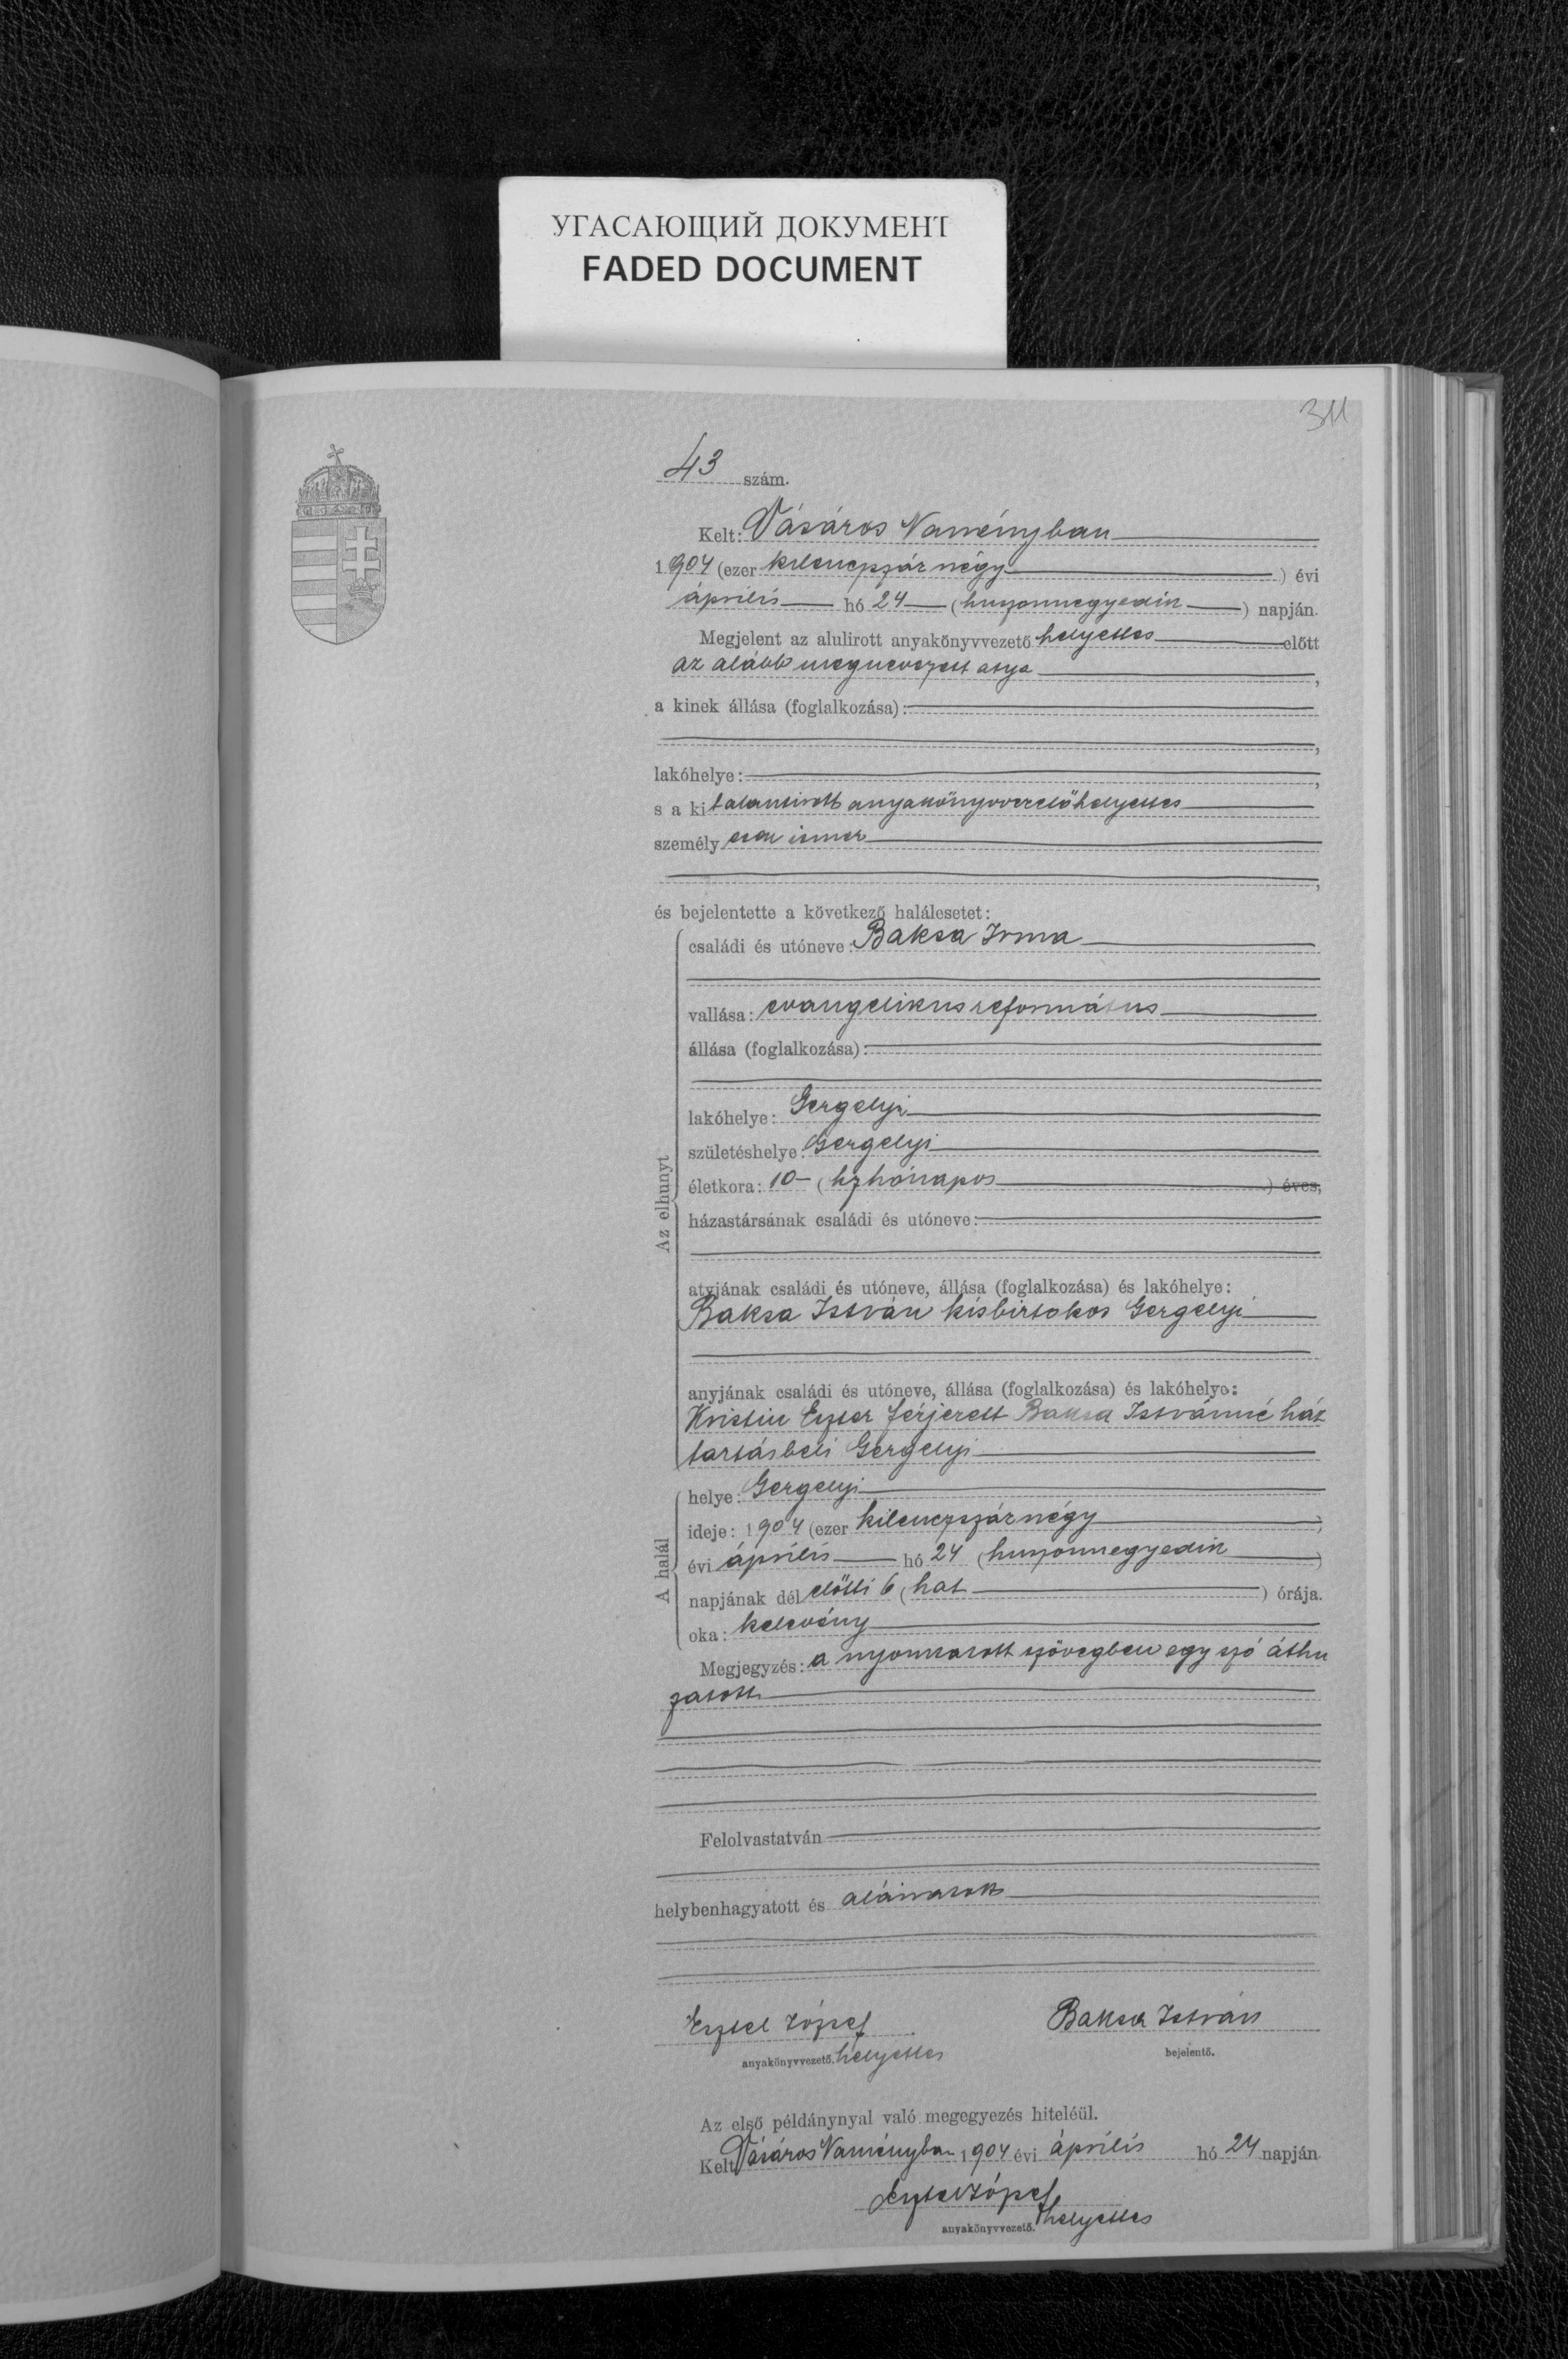 УГАСАЮЩИЙ ДОКУМЕНТ
FADED DOCUMENT
311
43 szám.
Kelt: Vásáros Naményban
1904 (ezer kilenczszáz négy) évi
április hó 24 (huszonnegyedik) napján.
Megjelent az alulirott anyakönyvvezető helyettes előtt
az alább megnevezett atya,
a kinek állása (foglalkozása):
,
lakóhelye: ,
s a kit alantirott anyakönyvvezetőhelyettes
személyesen ismer
,
és bejelentette a következő halálesetet:
Az elhunyt
családi és utóneve: Baksa Irma
vallása: evangelikus református
állása (foglalkozása):
lakóhelye: Gergelyi
születéshelye: Gergelyi
életkora: 10 (tiz hónapos) éves,
házastársának családi és utóneve:
atyjának családi és utóneve, állása (foglalkozása) és lakóhelye:
Baksa István kisbirtokos Gergelyi
anyjának családi és utóneve, állása (foglalkozása) és lakóhelye:
Eszter férjezett Baksa Istvánné ház
tartásbeli Gergelyi
A halál
helye: Gergelyi
ideje: 1904 (ezer kilenczszáz négy)
évi április hó 24 (huszonnegyedik)
napjának dél előtti 6 (hat) órája.
oka: kelevény
Megjegyzés: a nyomtatott szövegben egy szó áthu
zatott
Felolvastatván
helybenhagyatott és aláiratott
József Baksa István
anyakönyvvezető. helyettes bejelentő.
Az első példánynyal való megegyezés hiteléül.
Kelt Vásáros Naményban 1904 évi április hó 24 napján
József
anyakönyvvezető. helyettes